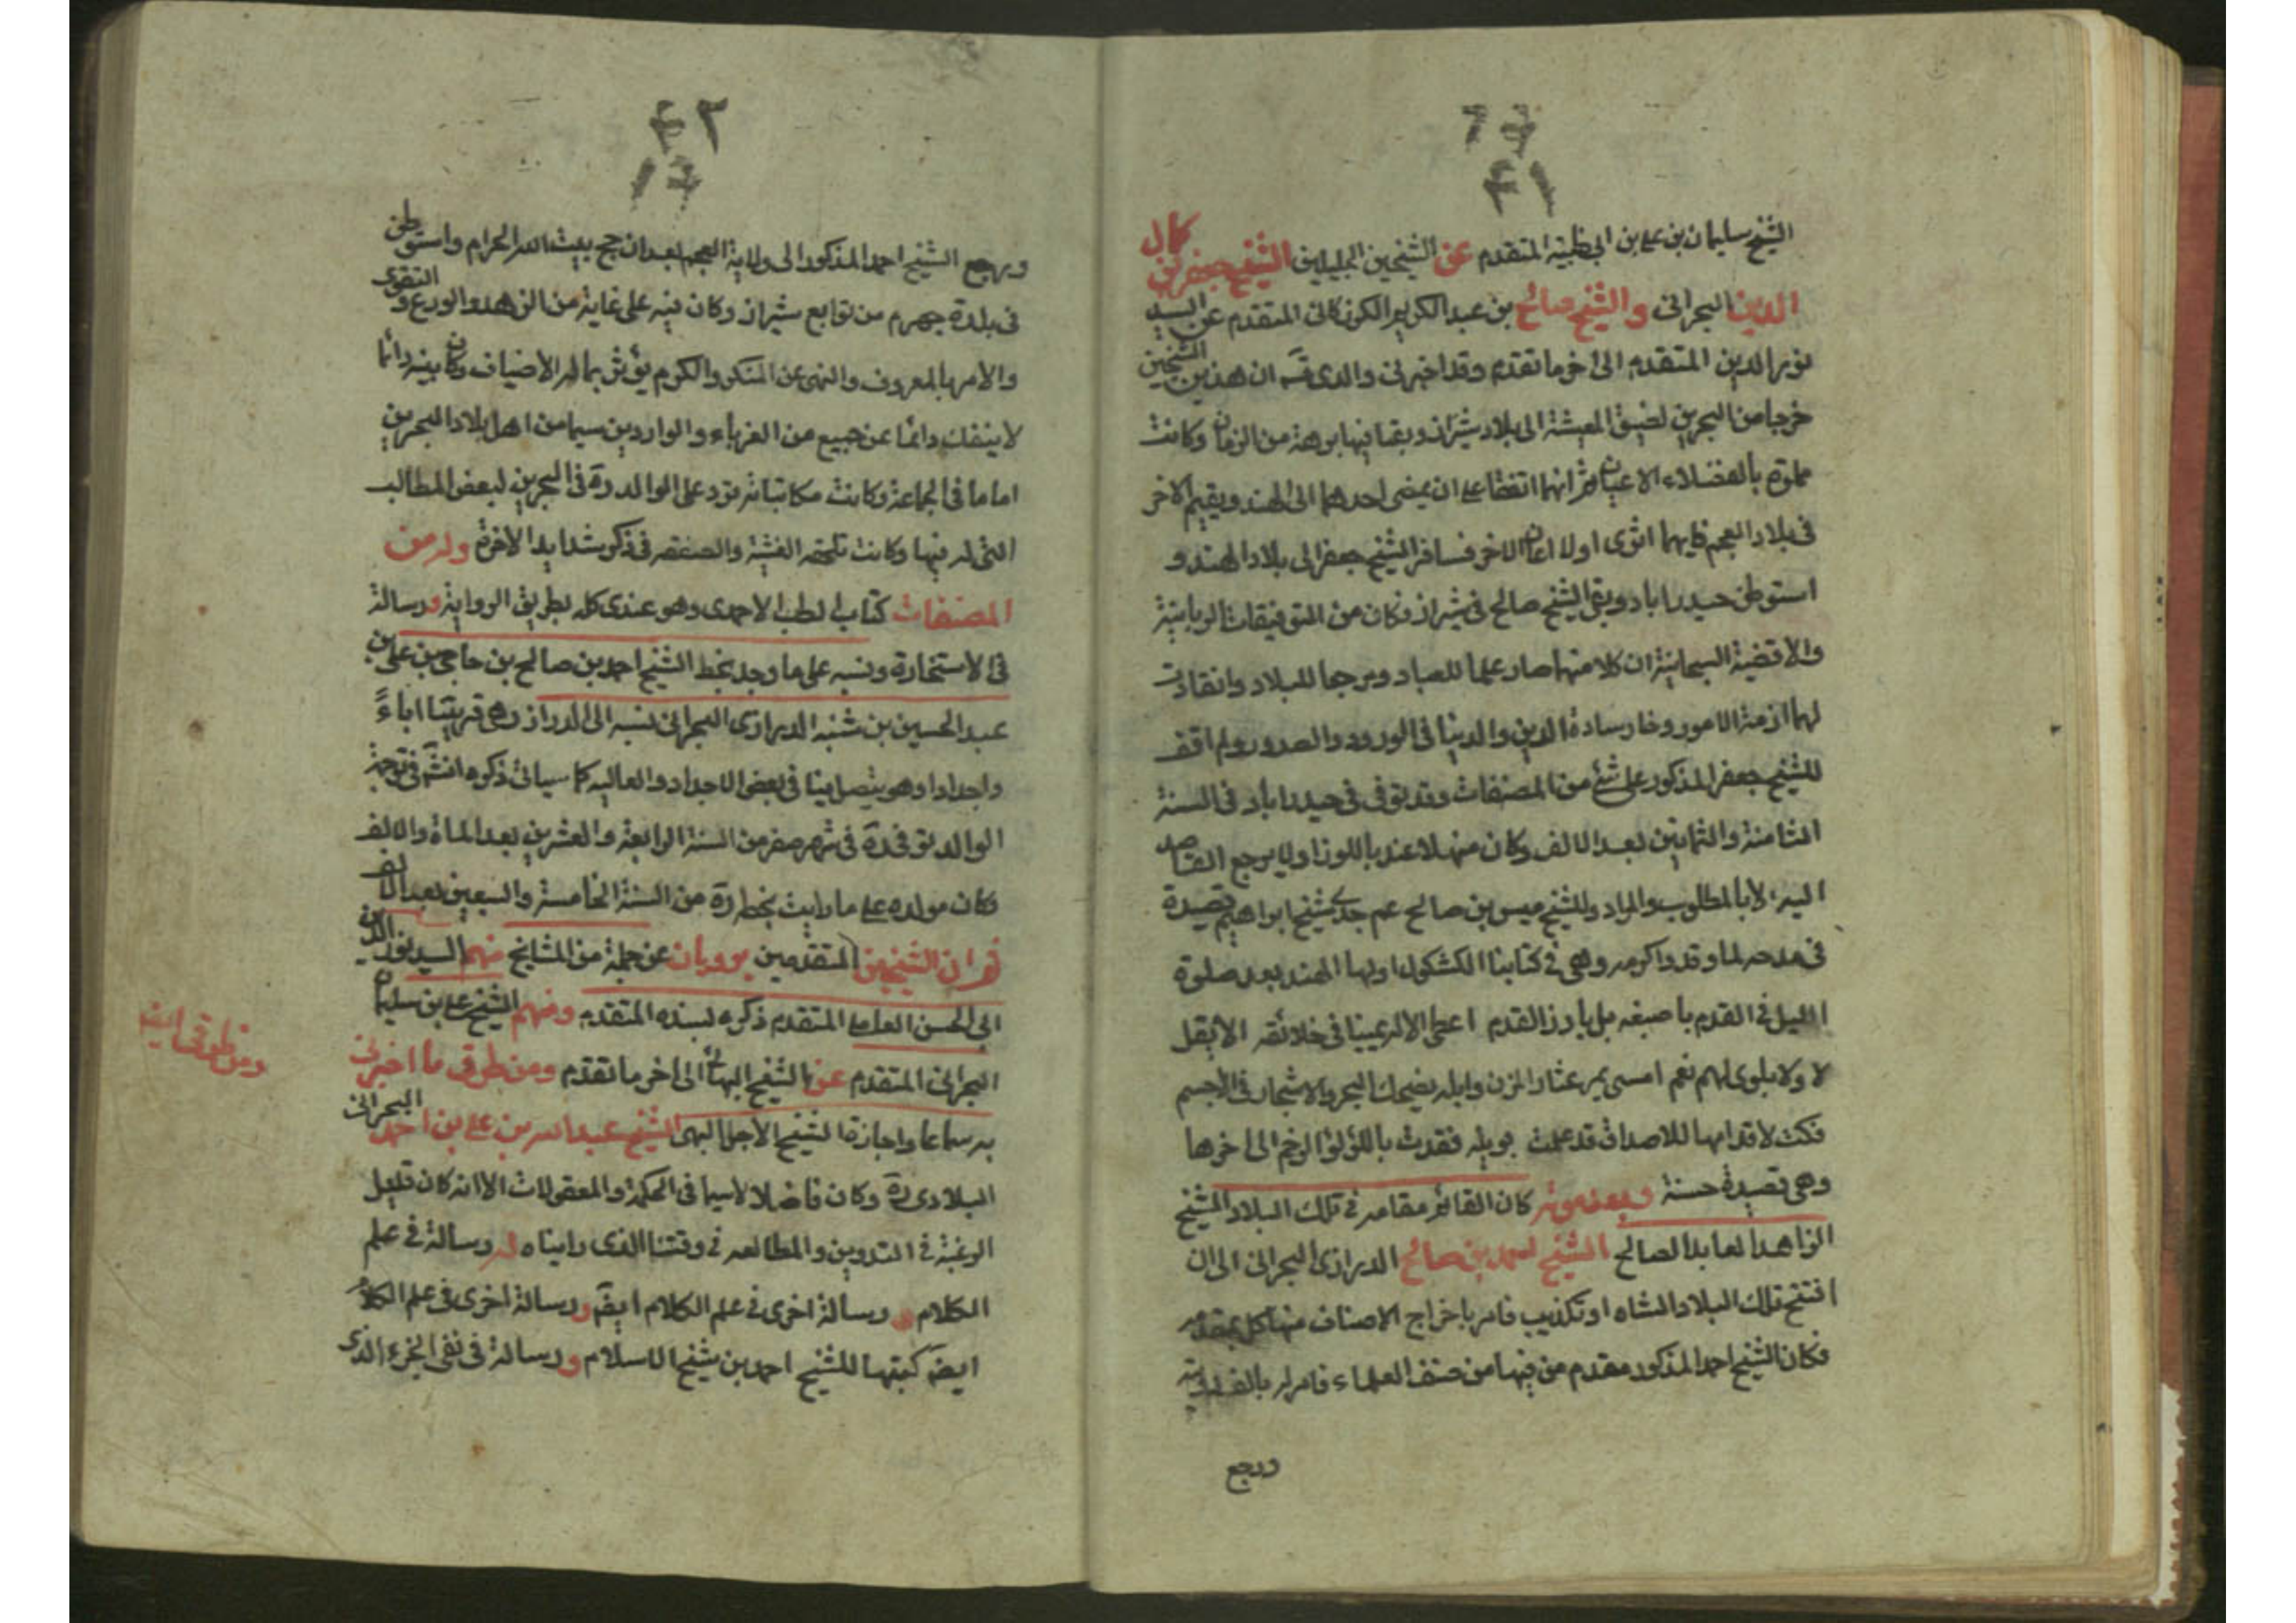 ٤١
الشيخ سليمان بن علي بن ابي ظبية المتقدم عن الشيخين الجليلين الشيخ جعفر بن كمال
الدين البحراني والشيخ صالح بن عبد الكريم الكرزكاني المتقدم عن السيد
نور الدين المتقدم الى اخر ما تقدم وقد اخبرني والدي قده ان هذين الشيخين
خرجا من البحرين لضيق المعيشة الى بلاد شيراز وبقيا فيها برهة من الزمان وكانت
مملوة بالفضلاء الاعيان ثم انهما اتفقا على ان يمضي احدهما الى الهند ويقيم الاخر
في بلاد العجم فايهما اثرى اولا اعان الاخر فسافر الشيخ جعفر الى بلاد الهند و
استوطن حيدراباد وبقي الشيخ صالح في شيراز وكان من التوفيقات الربانية
والاقضية السبحانية ان كلا منهما صار علما للعباد ومرجعا للبلاد وانقادت
لهما ازمة الامور وحاز سادة الدين والدنيا في الورود والصدور ولم اقف
للشيخ جعفر المذكور على شئ من المصنفات وقد توفي في حيدراباد في السنة
الثامنة والثمانين بعد الالف وكان منهلا عذبا للوراد لا يرجع القاصد
اليه الا بالمطلوب والمراد وللشيخ عيسى بن صالح عم جدي الشيخ ابراهيم قصيدة
في مدحه لما وفد واكرمه وهي في كتابنا الكشكول اولها الهند بعد صلوة
الليل في القدم باصبغه بل بارز القدم اعطى الاله يمينا في خلائقه الا بقل
لا ولا بلوى لهم نعم امسى يمر عثار المزن وابله يضحك البحر والاشجار في الاجم
فكت لاقدامها للاصداف قد عملت بوبله فقدت باللؤلؤ الرخم الى اخرها
وهي قصيدة حسنة وبعد موته كان القائم مقامه في تلك البلاد الشيخ
الزاهد العابد الصالح الشيخ احمد بن صالح الدرازي البحراني الى ان
افتتح تلك البلاد الشاه اورنكزيب فامر باخراج الاصناف منها كل بمقدمه
فكان الشيخ احمد المذكور مقدم من فيها من صنف العلماء فامر له بالف روبية
ورجع
٤٢
ورجع الشيخ احمد المذكور الى ولاية العجم بعد ان حج بيت الله الحرام واستوطن
في بلدة جهرم من توابع شيراز وكان فيه على غاية من الزهد والورع والتقوى
والامر بالمعروف والنهي عن المنكر والكرم يؤثر بماله الاضياف وكان بيته دائما
لا ينفك دائما عن جميع من الغرباء والواردين سيما من اهل بلاد البحرين
اماما في الجماعة وكانت مكاتباته ترد على الوالد ره في البحرين لبعض المطالب
التي له فيها وكانت تلحقه الغشية والصعقه في ذكر شدايد الاخرة وله من
المصنفات كتاب الطب الاحمدي وهو عندي كله بطريق الرواية ورسالة
في الاستخارة ونسبه على ما وجد بخط الشيخ احمد بن صالح بن حاجي بن علي بن
عبد الحسين بن شنبه الدرازي البحراني نسبه الى الدراز وهي قريتنا اباءً
واجدادا وهو يتصل بنا في بعض الاجداد والعاليه كما سياتي ذكره انشم في ترجمة
الوالد توفي ره في شهر صفر من السنة الرابعة والعشرين بعد الماة والالف
وكان مولده على ما رايت بخطه ره من السنة الخامسة والسبعين بعد الالف
ثم ان الشيخين المتقدمين يرويان عن جملة من المشايخ منهم السيد نور الدين
ابي الحسن العاملي المتقدم ذكره بسنده المتقدم ومنهم الشيخ علي بن سليمان
البحراني المتقدم عن الشيخ البهائي الى اخر ما تقدم ومن طرقي ما اخبرني
به سماعا واجازة الشيخ الاجل البهي الشيخ عبد الله بن علي بن احمد البحراني
البلادي ره وكان فاضلا لاسيما في الحكمة والمعقولات الا انه كان قليل
الرغبة في التدوين والمطالعه في وقتنا الذي رايناه له رسالة في علم
الكلام ورسالة اخرى في علم الكلام ايضً ورسالة اخرى في علم الكلام
ايضً كتبها للشيخ احمد بن شيخ الاسلام ورسالة في نفي الجزء الذي
ومن طرقي ايضً